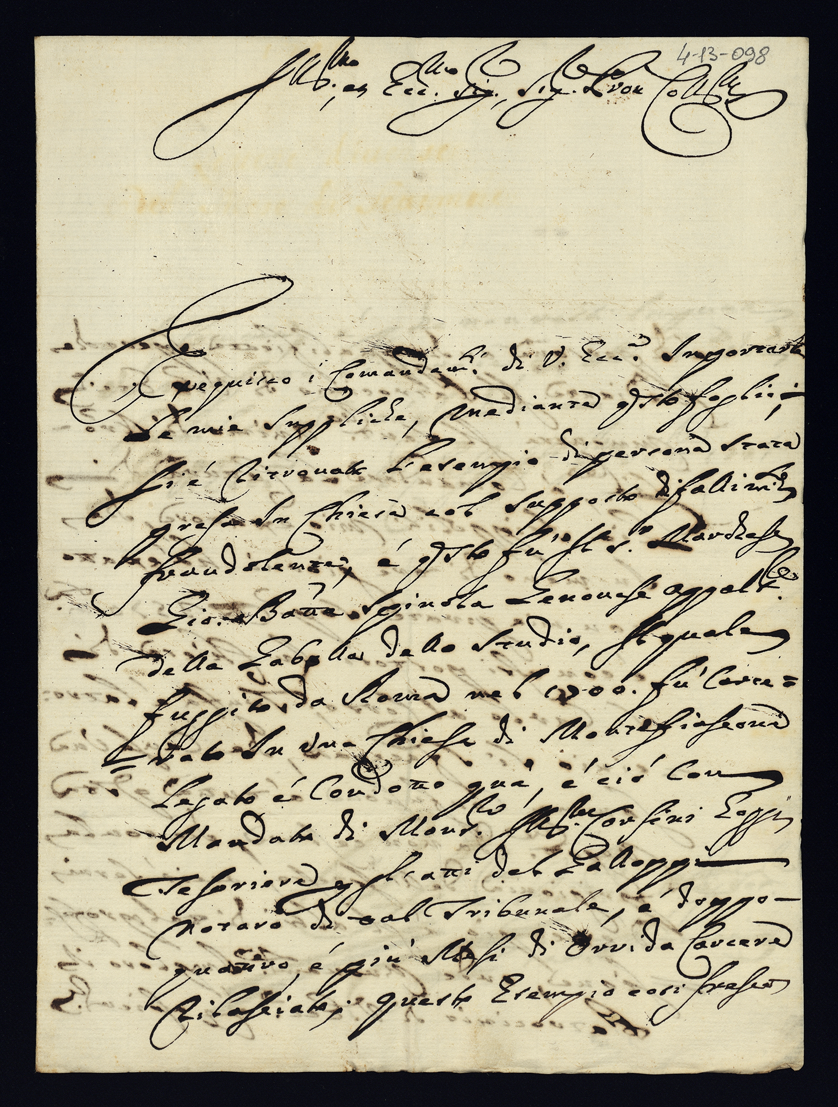 4-13-098
Ill.mo, et Ecc.mo Sig., Sig. Pron Coll.mo
Eseguisco i Comandam.ti di V. Ecc.a Importante
Le mie suppliche, mediante q.sto foglio;
si é ritrovato L'esempio di persona stata
presa In Chiesa col supposto di fallim.to
fraudolente, é q.sto fu' Il S.r Marchese
Gio: Batta Spinola Genovese appalt.e
della Gabella dello Studio, Il quale
fuggito da Roma nel 1700. fu' Carce=
=rato In una Chiesa di Montefiascone
Legato é Condotto quá, é ció Con
Mandato di Mons.r Ill.mo Corsini Oggi
Tesoriere p gl'atti del Galloppi
Notaro di tal Tribunale, é doppo
quattro, é piu' Mesi di Orrida Carcere
Rilasciato; questo Esempio cosi fresco